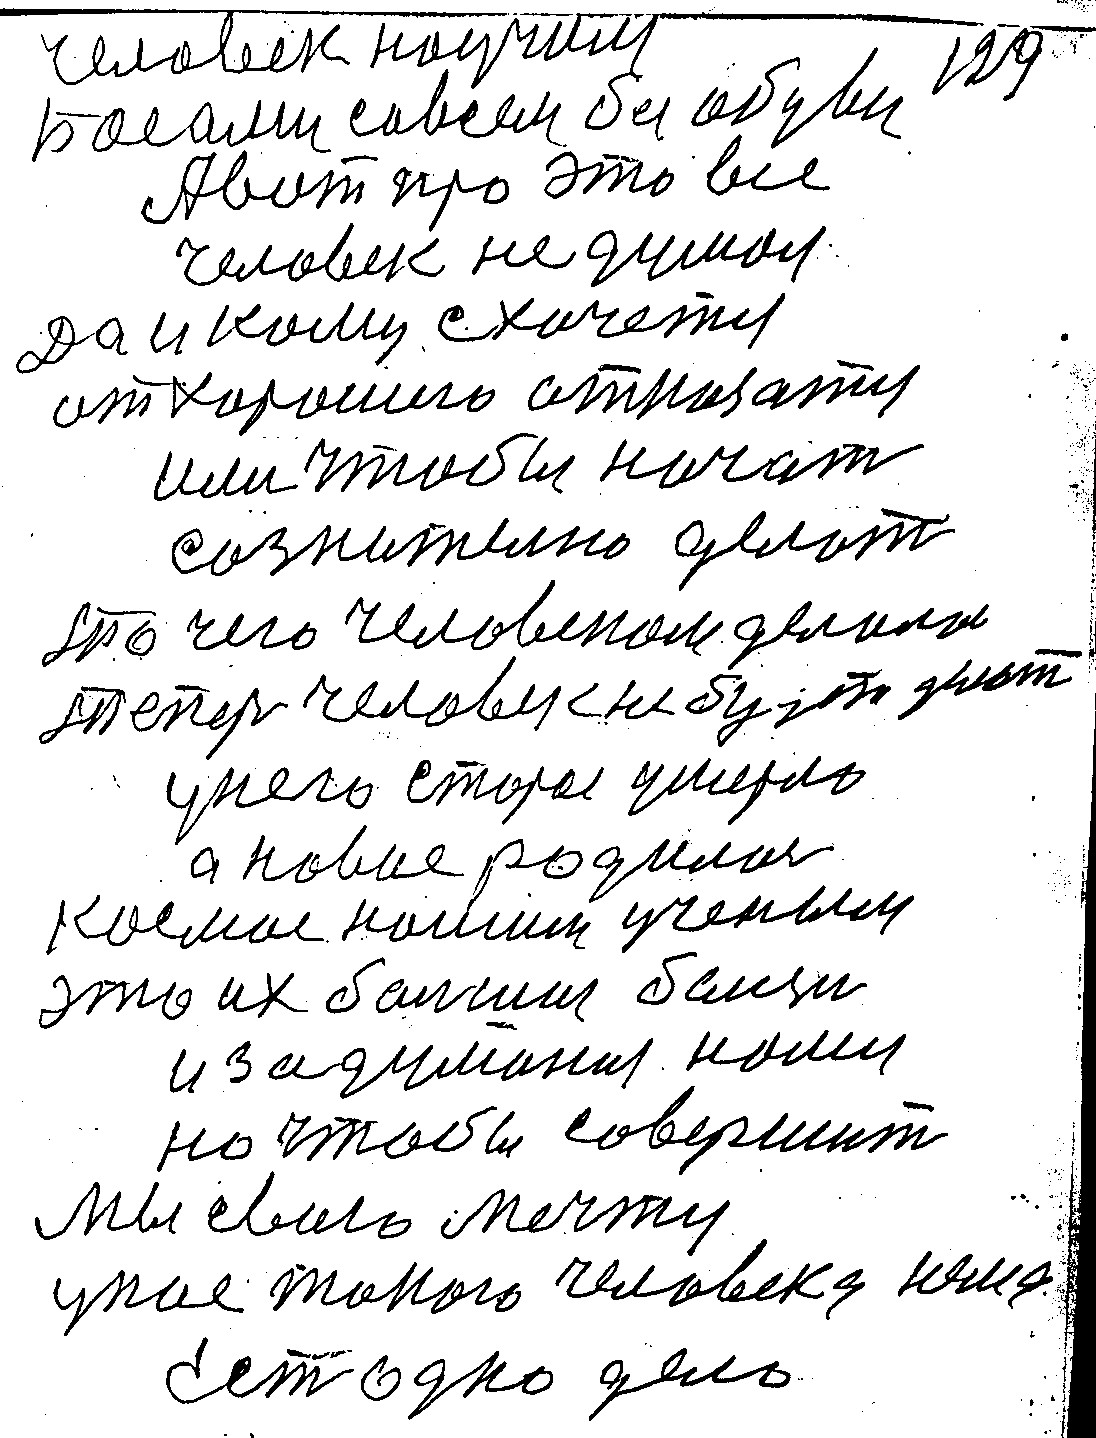 человек научим 129
Босами совсем без обуви
А вот про это все
человек не думал
да и кому схочетця
от хорошего отказатця
или чтобы начат
сознително делат
то чего человеком делалос
тепер человек не будет делат
у него старое умерло
а новое родилос
Космос нашим ученым
это их
и задумания нами
но чтобы совершит
Мы свого мечту
у нас такого человека нема
Ест одно дело